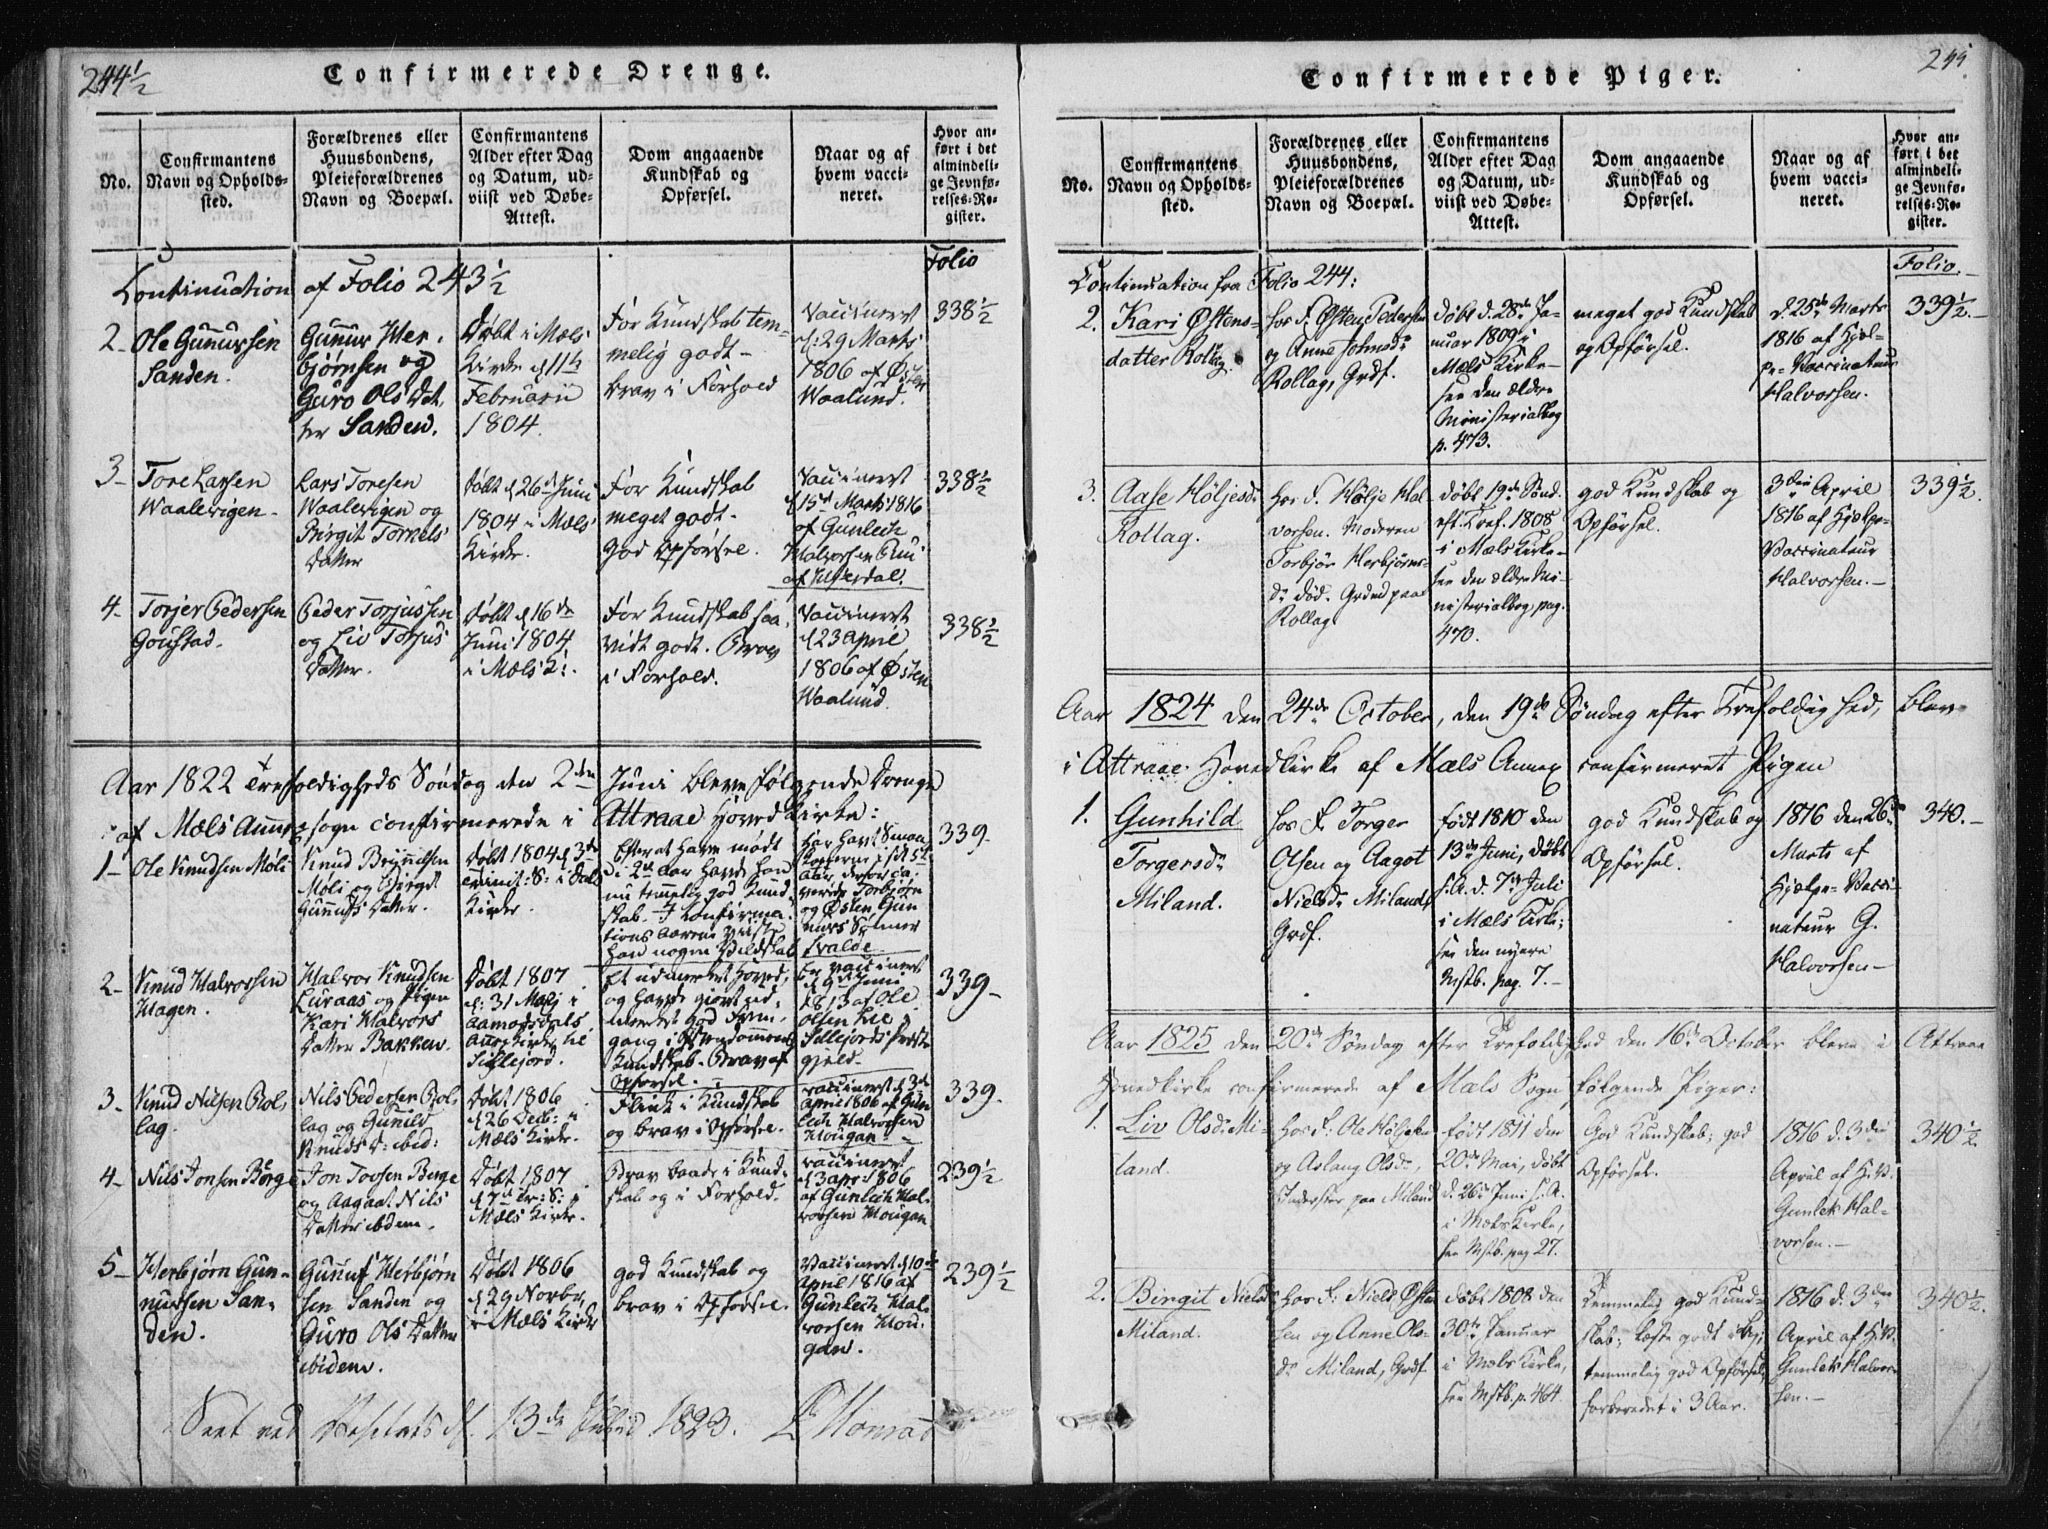 244 1/2
Confirmerede Drenge.
No.
Confirmantens
Navn og Opholds-
sted.
Forældrenes eller
Huusbondens,
Pleieforældrenes
Navn og Boepæl.
Confirmantens
Alder efter Dag
og Datum, ud-
viist ved Døbe-
Attest.
Dom angaaende
Kundskab og
Opførsel.
Naar og af
hvem vacci-
neret.
Hvor an-
ført i det
almindeli-
ge Jevnfø-
relses-Re-
gister.
Folio
Continuation af Folio 243 1/2
2-
Ole Gunursen
Sanden.
Gunur Her-
bjørnsen og
Guro Ols Dat-
ter Sanden.
Døbt i Mæls
Kirke d 11te
Februarii
1804.
For Kundskab tem-
melig godt-
brav i Forhold
Vaccineret
d: 29 Marts
1806 af Østen
Waalund.
338 1/2
3-
Tore Larsen
Waalevigen-
Lars Toresen
Waalevigen og
Birgit
Datter
Døbt d 26de Juni
1804 i Mæls
Kirke.
For Kundskab
meget godt-
God Opførsel.
Vaccineret
d 15de Marts 1816
af Gunlech
Halvorsen
338 1/2
4-
Torjer Pedersen
Goustad.
Peder Torjussen
og Liv Torjus
Datter.
Døbt d 16de
Juni 1804
i Mæls K:
For Kundskab saa-
vidt godt. Brav
i Forhold.
Vaccineret
d 23 April
1806 af Østen
Waalund
338 1/2
Aar 1822 Trefoldigheds Søndag den 2den Juni bleve følgende Drenge
af Mæls Annex sogn confirmerede i Attraae Hoved Kirke:
1-
Ole Knudsen Møli
Knud Brynildsen
Møli og Birgit
Gunnufs Datter.
Døbt 1804 d 3de
Trinit: S: i Dals
Kirke.
Efter at have mødt
i 2de Aar havde han
nu temmelig god Kund-
skab. I Confirma-
tions Aarene viiste
han nogen Vildskab
Har havt Smaa-
Kopperne i sit 5te
Aar, derfor ca-
verede Torbjørn
og Østen Gun
nurs Sønner
Svalde.
339.
2-
Knud Halvorsen
Hagen.
Halvor Knudsen
Luraas og Pigen
Kari Halvors
Datter Bakken.
Døbt 1807
d: 31 Maij i
Aamodsdals
Annex Kirke til
Sillejord.
Et udmerket Hoved,
og havde giort ud-
merket god Frem-
gang i Christendommens
Kundskab. Brav af
Opførsel.
Er vaccineret
d 9de Juni
1813 af Ole
Olsen Lie
Sillejords Præste-
gjeld.
339-
3-
Knud Nilsen Rol-
lag.
Nils Pedersen Rol-
lag og Gunild
Knuds D: ibid:
Døbt 1806
d 26 Decb: i
Mæls Kirke.
Flink i Kundskab
og brav i Opførsel.
vaccineret d 3de
April 1806 af Gun-
lech Halvorsen
Hougan
339.
4-
Nils Jonsen Børge
Jon Tovsen Berge
og Aagaat Nils
Datter ibidem.
Døbt 1807
d 7de Tr: S: i
Mæls Kirke.
Brav baade i Kund-
skab og i Forhold.
vaccineret
d 3 apr: 1806
af Gunlech Hal-
vorsen Hougan
239 1/2
5-
Herbjørn Gun-
nursen San-
den.
Gunuf Herbjørn
sen Sanden og
Guro Ols Datter
ibidem.
Døbt 1806
d 29 Norbr.
i Mæls Kirke
god Kundskab og
brav i Opførsel.
Vaccineret d 10de
April 1816 af
Gunlech Hal-
vorsen Hou-
gan.
239 1/2
Seet ved d. 13de 1823.
245
Confirmerede Piger.
No.
Confirmantens
Navn og Opholds-
sted.
Forældrenes eller
Huusbondens,
Pleieforældrenes
Navn og Boepæl.
Confirmantens
Alder efter Dag
og Datum, ud-
viist ved Døbe-
Attest.
Dom angaaende
Kundskab og
Opførsel.
Naar og af
hvem vacci-
neret.
Hvor an-
ført i det
almindeli-
ge Jevnfø-
relses-Re-
gister.
Folio.-
Continuation fra Folio 244:
2.
Kari Østens-
datter Rollag.
hos F. Østen Pedersen
og Anne Johnsdr
Rollag, Grdf.
døbt d. 28de Ja-
nuar 1809 i
Mæls Kirke-
see den ældre
Ministerialbog
p. 473.
meget god Kundskab
og Opførsel.
d. 25de Marts
1816 af Hjæl-
pe-Vaccinateur
Halvorsen.
339 1/2.-
3.
Aase Høljesdr
Rollag.
hos F. Hølje Hal
vorsen. Moderen
Torbjør Herbjørns-
dr død. Grdmd paa
Rollag
døbt 19de Sønd.
eft. Tref. 1808
i Mæls Kirke-
see den ældre Mi-
nisterialbog pag.
470.
god Kundskab og
Opførsel.
3die April
1816 af Hjælpe-
Vaccinateur
Halvorsen.-
339 1/2.
Aar 1824 den 24de October, den 19de Søndag efter Trefoldighed, blev
i Attraae Hovedkirke af Mæls Annex confirmeret Pigen
1.
Gunhild
Torgersdr
Miland.
hos F. Torger
Olsen og Aagot
Nielsdr Miland,
Grdf.
født 1810 den
13de Juni, døbt
s. A. d. 7de Juli
i Mæls Kirke;
see den nyere
Mstb. pag. 7.-
god Kundskab og
Opførsel.
1816 den 26de
Marts af
Hjælpe-Vacci-
nateur G.
Halvorsen-
340.-
Aar 1825 den 20de Søndag efter Trefoldighed den 16de October bleve i Attraae
Hovedkirke confirmerede af Mæls Sogn følgende Piger:
1.
Liv Olsdr Mi-
land.
Hos F: Ole Høljesen
og Aslaug Olsdr,
Inderster paa Miland
født 1811 den
20de Mai, døbt
d. 26de Juni s. A.
i Mæls Kirke,
see Mstb. pag 27.
God Kundskab; god
Opførsel.
1816 d. 3die
April af H.V.
Gunlek Hal-
vorsen.-
340 1/2
2.
Birgit Nielsdr
Miland.
Hos F: Niels Øste
sen og Anne Ols-
dr Miland, Grdf
døbt 1808 den
30te Januar
i Mæls Kirke,
see Mstb. p. 464.
Temmelig god Kund-
skab; læste godt i Bog;
temmelig god Opførsel;
forberedet i 3 Aar.
1816 d. 3die
April af H.V.
Gunlek Halvor-
sen.-
340 1/2.